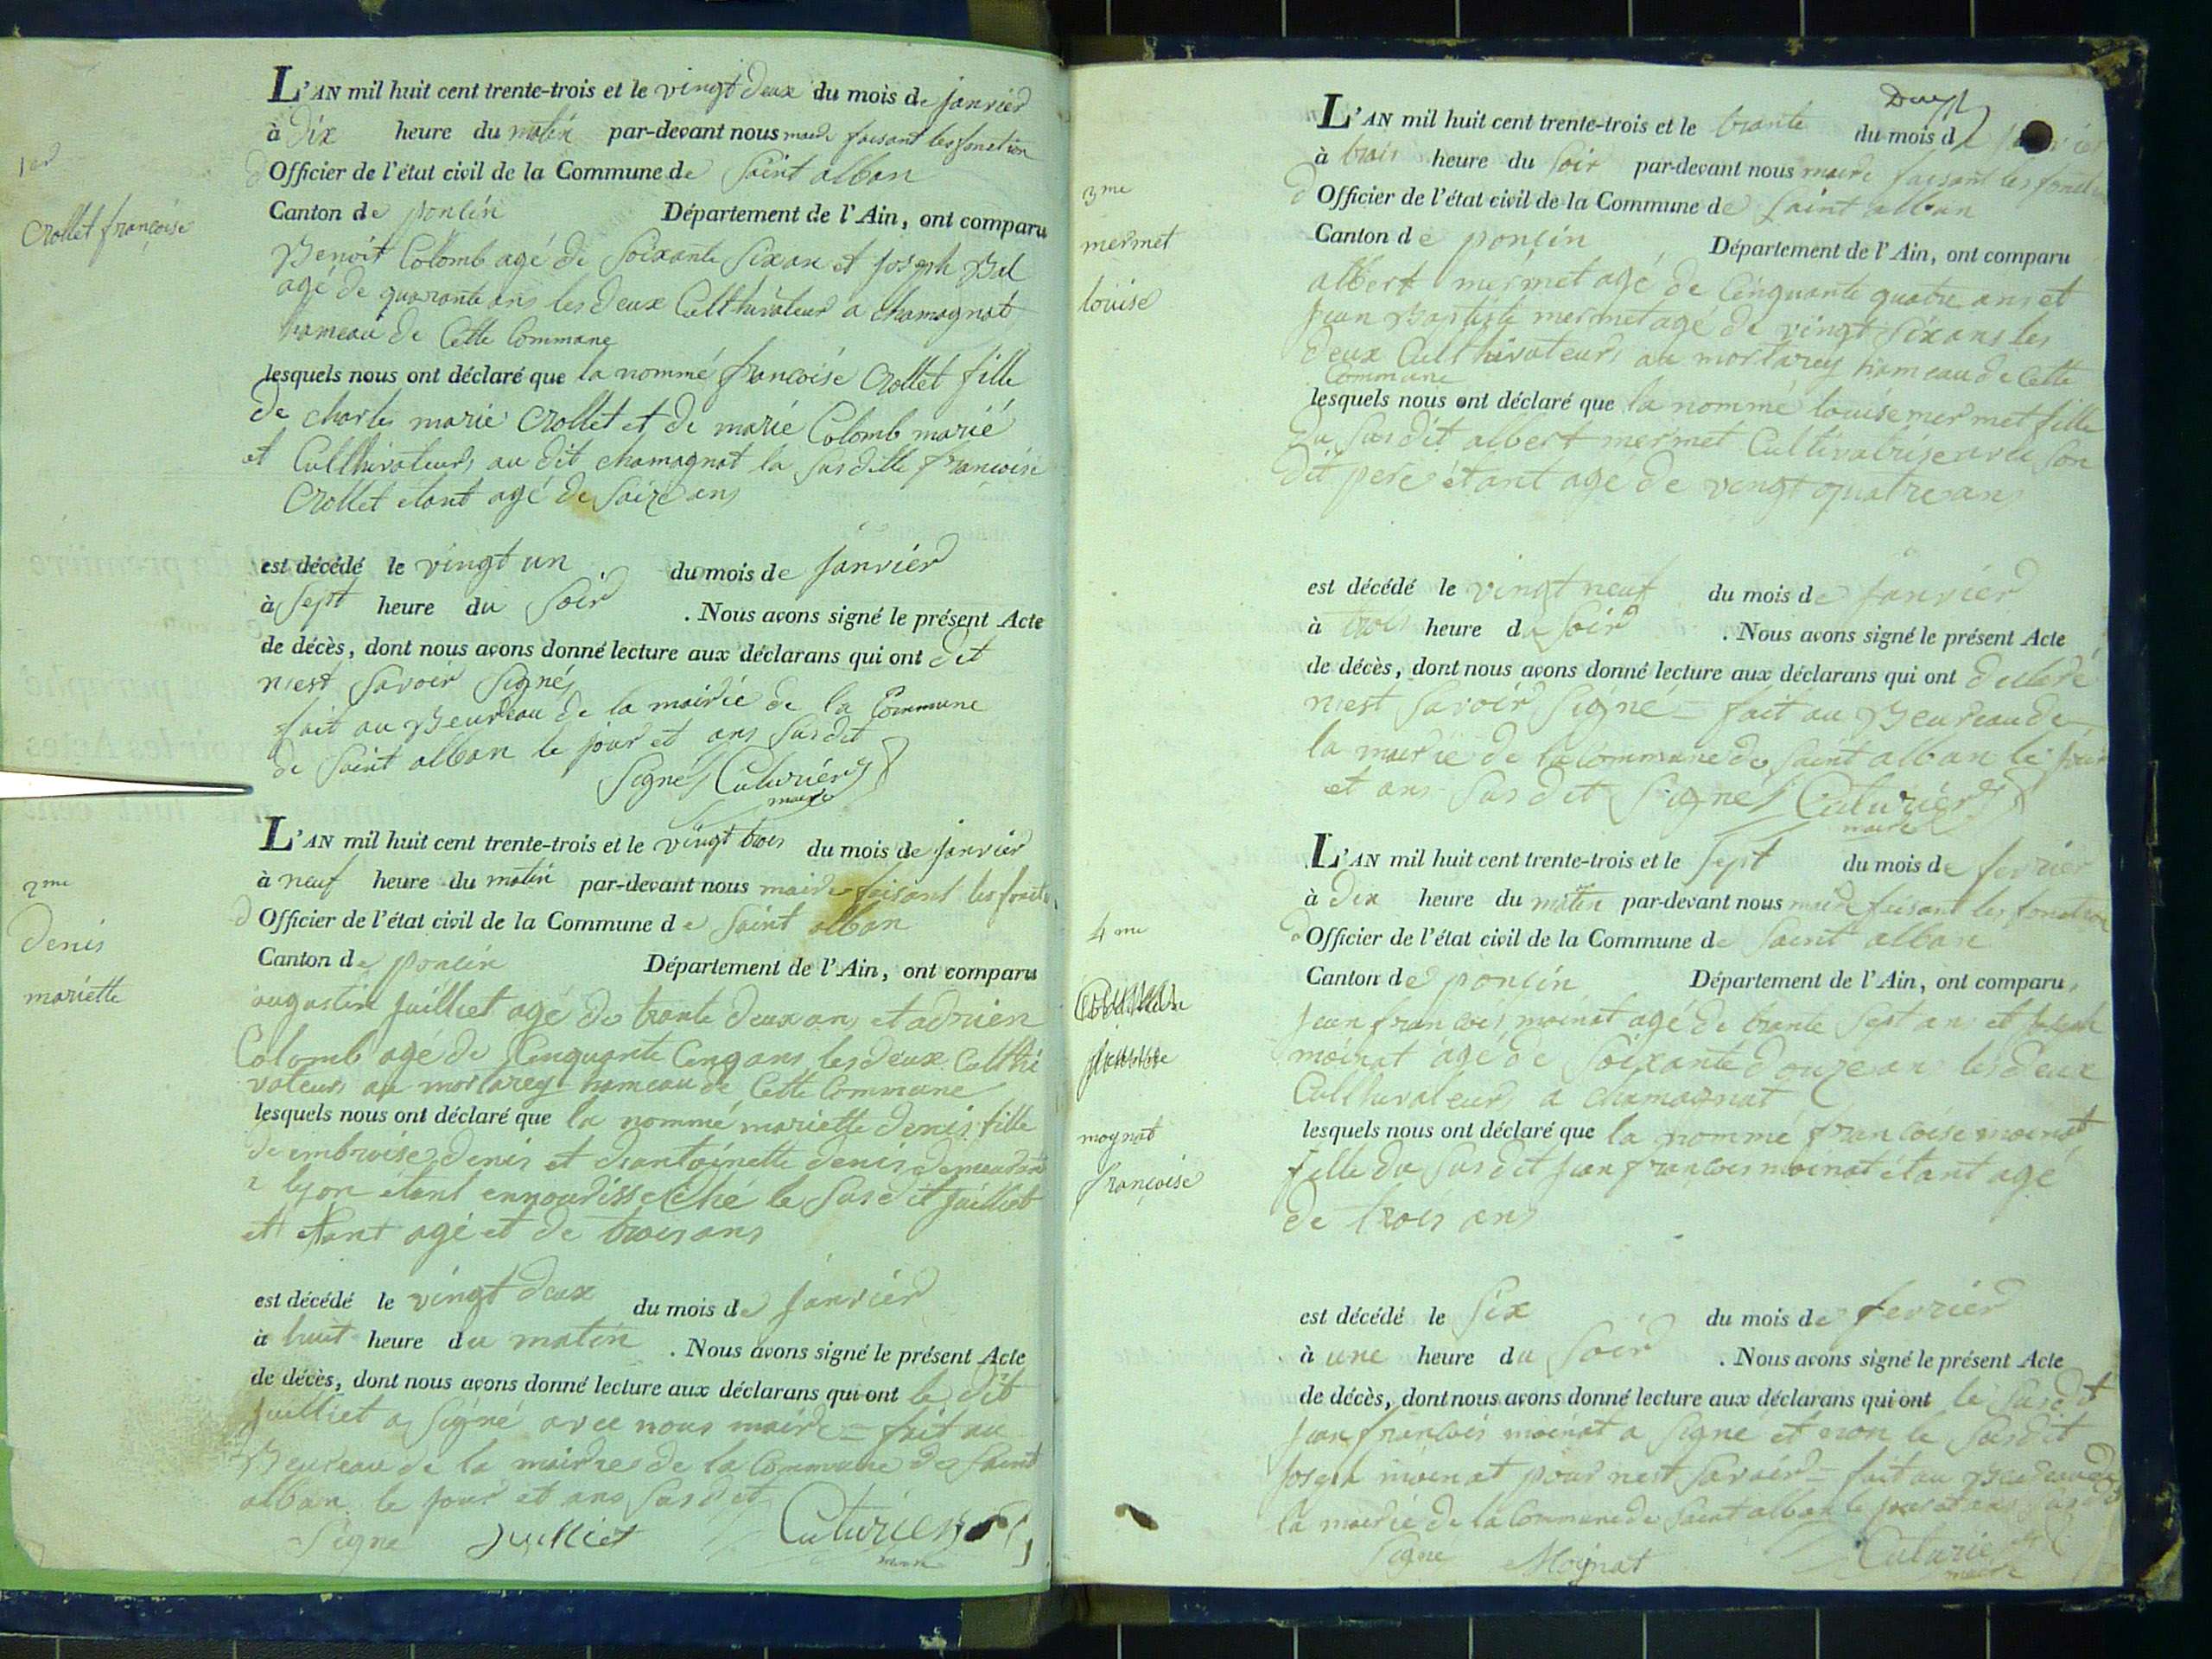 1er
Crollet françoise
L'AN mil huit cent trente-trois et le vingt deux du mois de janvier
à dix heure du matin par-devant nous maire faisant les fonction
d Officier de l'état civil de la Commune de Saint alban
Canton de poncin Département de l'Ain, ont comparu
Benoit Colomb agé de Soixante Six an et joseph Bal
agé de quarante ans les deux Culthivateur a chamagnat
hameau de Cette Commune
lesquels nous ont déclaré que la nommé françoise Crollet fille
de charles marie Crollet et de marie Colomb marié
et Culthivateurs au dit chamagnat la Susditte françoise
Crollet etant agé de Saize ans
est décédé le vingt un du mois de janvier
à Sept heure du Soir . Nous avons signé le présent Acte
de décès, dont nous avons donné lecture aux déclarans qui ont dit
nest Savoir Signés
fait au Beureau de la mairie de la Commune
de Saint alban le jour et ans Susdit
Signé Cuturier
maire
2me
Denis
mariette
L'AN mil huit cent trente-trois et le vingt trois du mois de janvier
à neuf heure du matin par-devant nous maire faisant les
d Officier de l'état civil de la Commune de Saint alban
Canton de poncin Département de l'Ain, ont comparu
augustin juilliet agé de trante deux ans et adrien
Colomb agé de Cinquante Cinq ans les deux Culthi
vateurs au mortarey hameau de Cette Commune
lesquels nous ont déclaré que la nommé mariette denis fille
de embroise denis et dantoinette denis
a lyon étant le Susdit juilliet
et etant agé et de trois ans
est décédé le vingt deux du mois de janvier
à huit heure du matin . Nous avons signé le présent Acte
de décès, dont nous avons donné lecture aux déclarans qui ont le dit
juilliet a Signé avec nous maire = fait au
Beureau de la mairie de la Commune de Saint
alban le jour et ans Susdit
Signé Juilliet Cuturier
maire
3me
mermet
louise
L'AN mil huit cent trente-trois et le trante du mois de
à trois heure du Soir par-devant nous maire faisant les fonction
d Officier de l'état civil de la Commune de Saint alban
Canton de poncin Département de l'Ain, ont comparu
albert mermet agé de Cinquante quatre ans et
jean Baptiste mermet agé de vingt Six ans les
deux Culthivateurs au mortarey hameau de Cette
Commune
lesquels nous ont déclaré que la nommé louise mermet fille
du Susdit albert mermet Cultivatrise avec Son
dit pere étant agé de vingt quatre ans
est décédé le vingt neuf du mois de janvier
à trois heure du Soir . Nous avons signé le présent Acte
de décès, dont nous avons donné lecture aux déclarans qui ont déclaré
nest Savoir Signé = fait au Beureau de
la mairie de la Commune de Saint alban le jour
et ans Susdit Signé Cuturier
maire
4me
mognat
françoise
L'AN mil huit cent trente-trois et le Sept du mois de fevrier
à dix heure du matin par-devant nous maire faisant les fonction
d Officier de l'état civil de la Commune de Saint alban
Canton de poncin Département de l'Ain, ont comparu
jean francois moinat agé de trante Sept ans et joseph
moinat agé de Soixante douze ans les deux
Culthivateurs a chamagnat
lesquels nous ont déclaré que la nommé francoise moinat
fille du Susdit jean francois moinat étant agé
de trois ans
est décédé le Six du mois de fevrier
à une heure du Soir . Nous avons signé le présent Acte
de décès, dont nous avons donné lecture aux déclarans qui ont le Susdit
jean francois moinat a Signé et non le Susdit
joseph moinat pour nest Savoir = fait au Beureau de
la mairie de la Commune de Saint alban le jour et ans Susdit
Signé Moynat Cuturier
maire